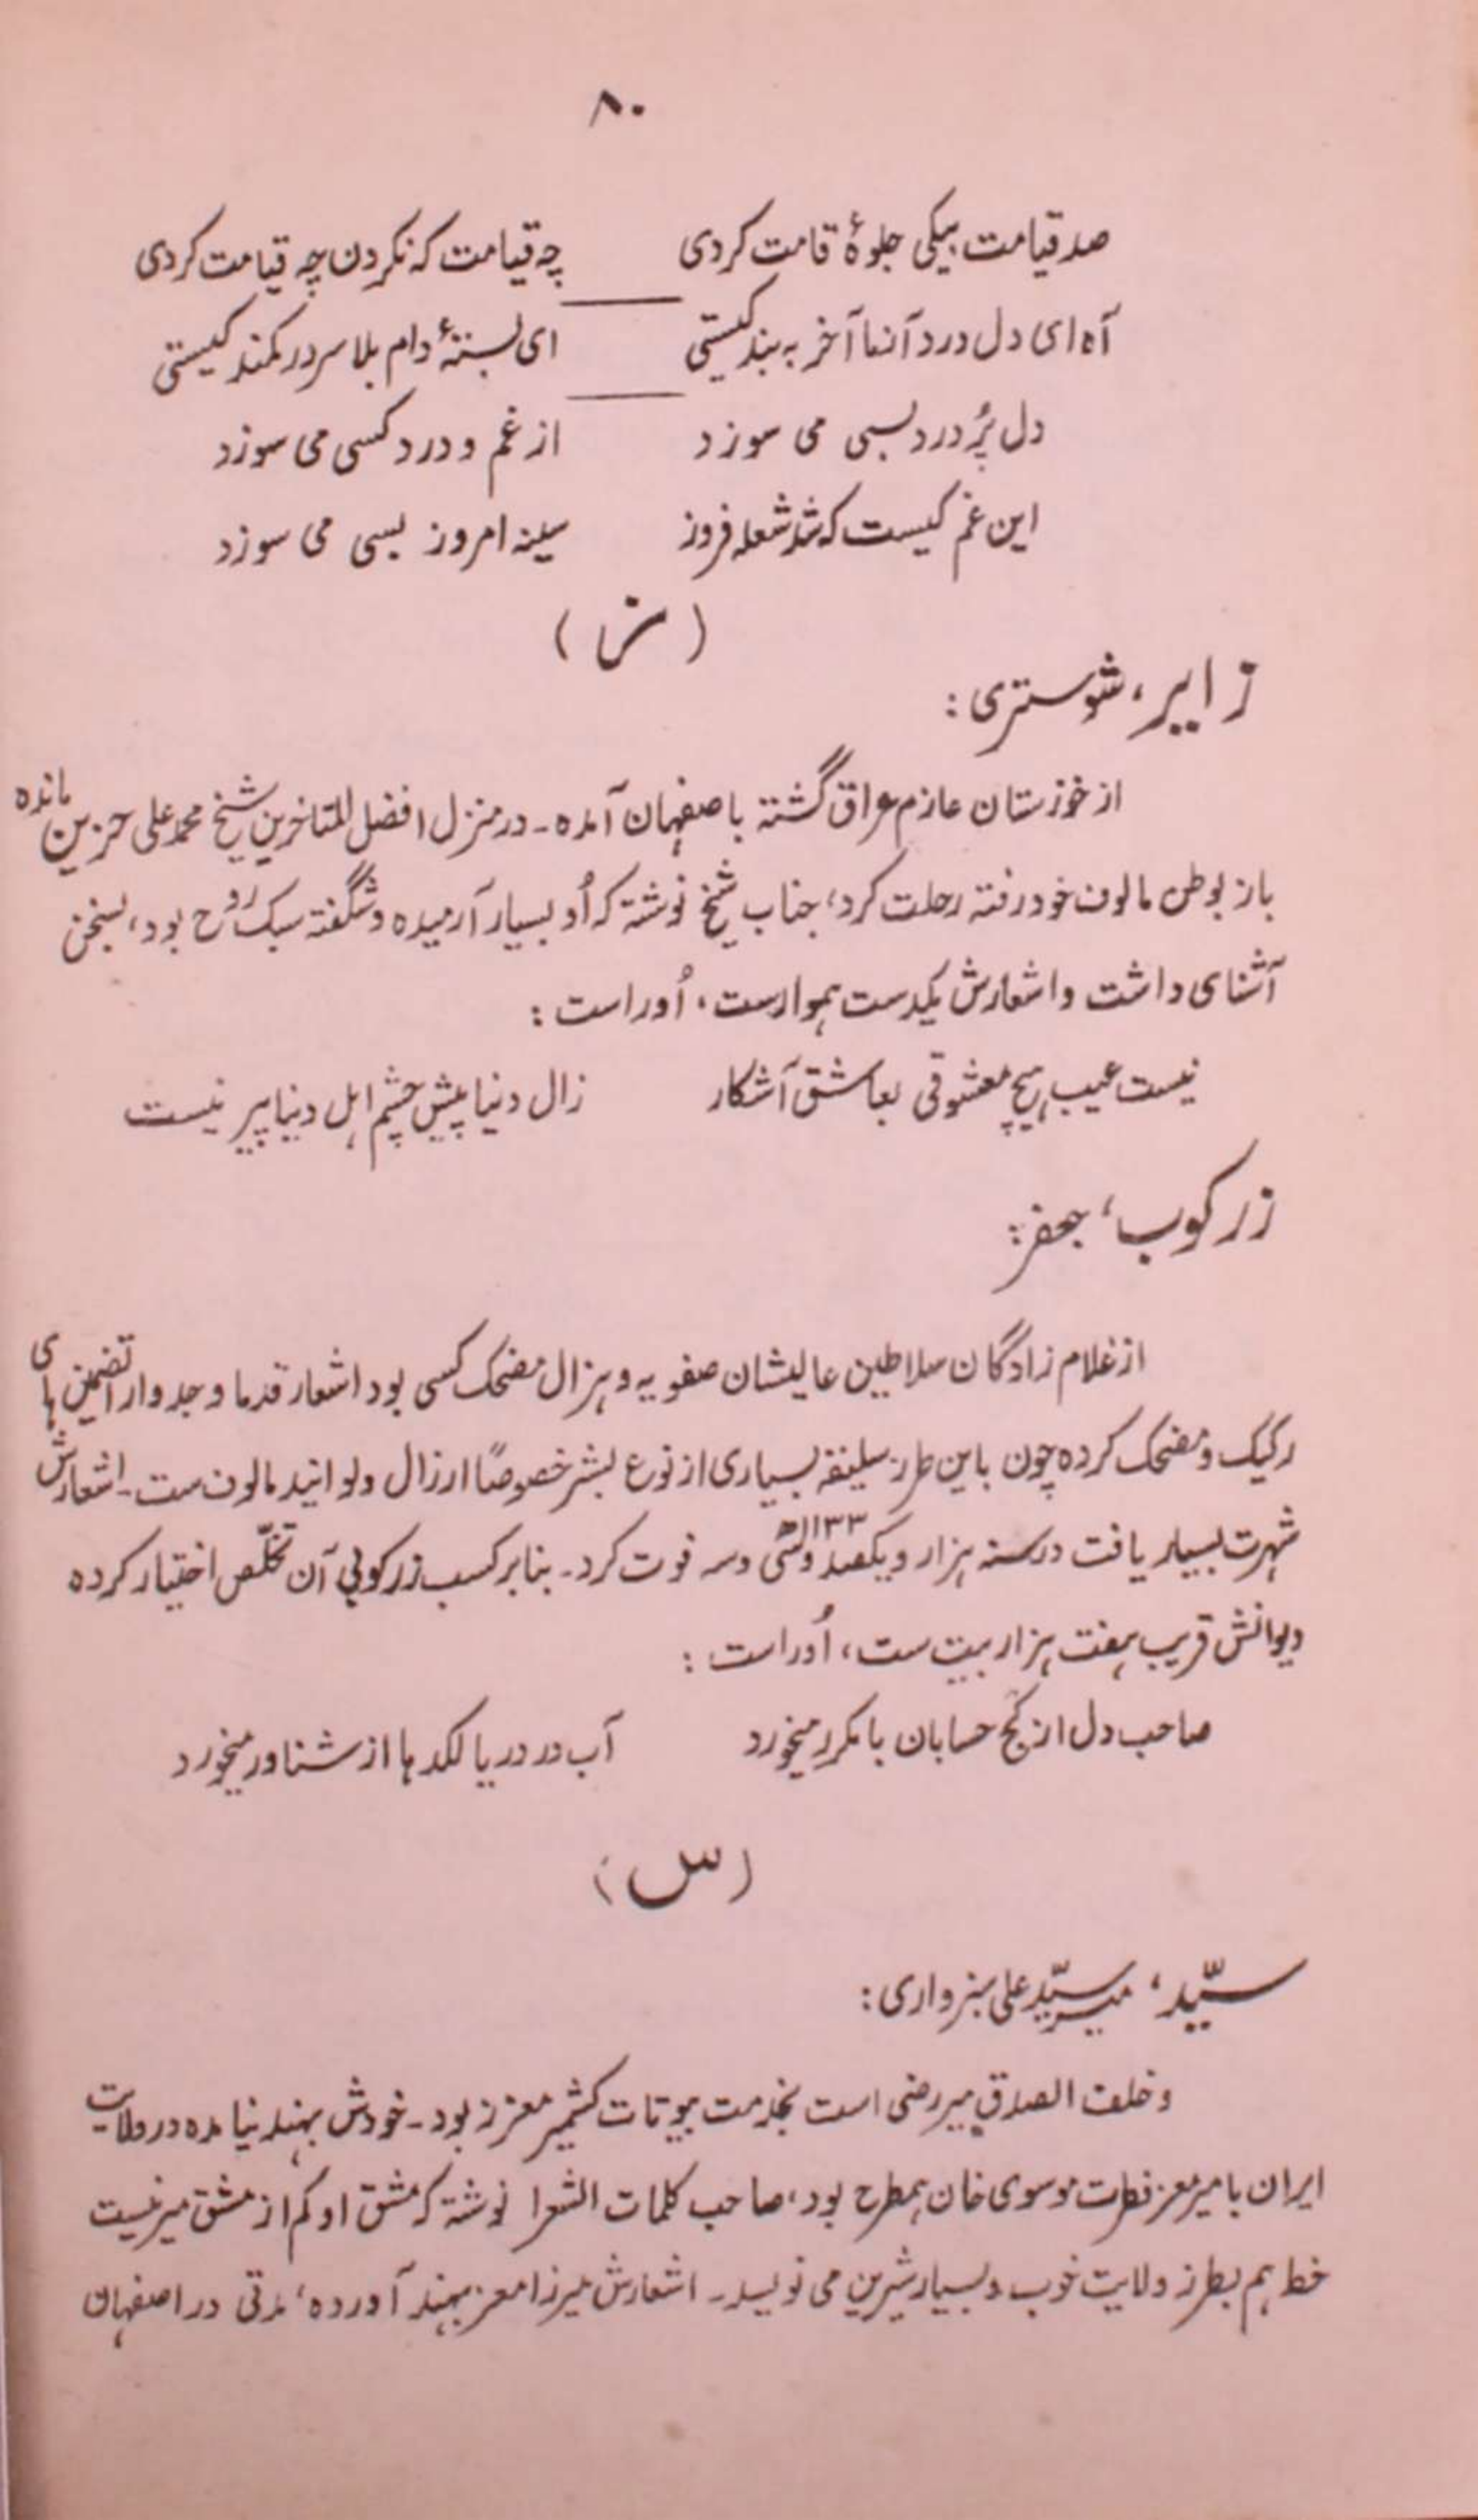 ۸۰
صد قیامت بیکی جلوۂ قامت کردی چه قیامت که نکردن چه قیامت کردی
آه ای دل درد آنها آخر به بند کیستی ای بستۂ دام بلا سر در کمند کیستی
دل پُر درد بسی می سوزد از غم و درد کسی می سوزد
این غم کیست که شد شعله فروز سینه امروز بسی می سوزد
(ز)
زایر، شوستری:
از خوزستان عازم عراق گشته باصفهان آمده۔ در منزل افضل المتاخرین شیخ محمد علی حزین مانده
باز بوطن مالوف خود رفته رحلت کرد، جناب شیخ نوشته که اُو بسیار آرمیده و شگفته سبک روح بود، بسخن
آشنای داشت و اشعارش یکدست هموارست، اُوراست:
نیست عیب هیچ معشوقی بعاشق آشکار زال دنیا پیش چشم اهل دنیا پیر نیست
زرکوب، جعفر:
از غلام زادگان سلاطین عالیشان صفویه و هزال مضحک کسی بود اشعار قدما و جد وار اتضمین های
رکیک و مضحک کرده چون باین طرز سلیقه بسیاری از نوع بشر خصوصاً ارزال ولواتید مالوف ست۔ اشعارش
شهرت بسیار یافت در سنه هزار و یکصد و سی و سه ۱۱۳۳ھ فوت کرد۔ بنابر کسب زرکوبی آن تخلّص اختیار کرده
دیوانش قریب بهفت هزار بیت ست، اُوراست:
صاحب دل از کج حسابان با مکرر میخورد آب در دریا لکد ها از شناور میخورد
(س)
سیّد، میر سیّد علی سبزواری:
و خلف الصدقِ میر رضی است بخدمت بیوتات کشمیر معزز بود۔ خودش بهند نیامده در ولایت
ایران با میر معز فطرت موسوی خان همطرح بود، صاحب کلمات الشعرا نوشته که مشق او کم از مشق میر نیست
خط هم بطرز ولایت خوب و بسیار شیرین می نویسد۔ اشعارش میرزا معز بهند آورده، مدتی در اصفهان